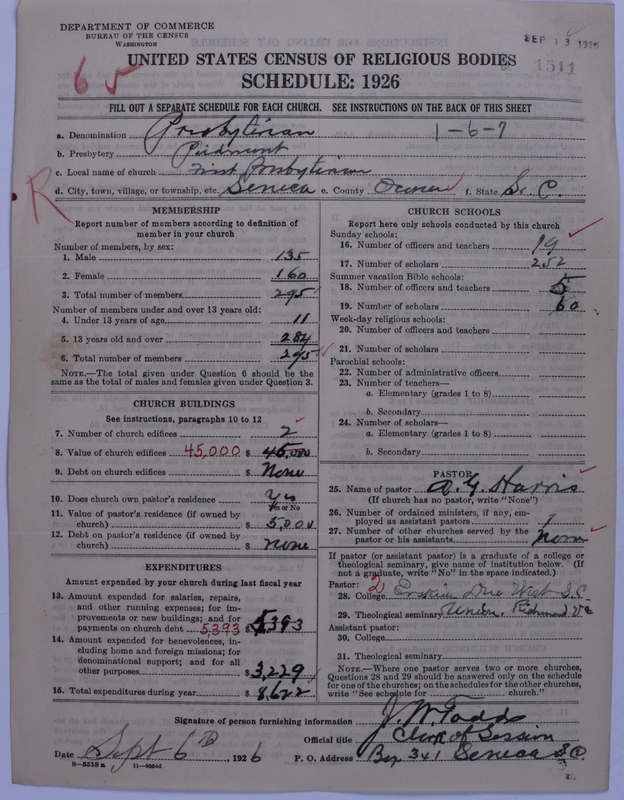 DEPARTMENT OF COMMERCE
BUREAU OF THE CENSUS
WASHINGTON
SEP 13 1926
1511
65
UNITED STATES CENSUS OF RELIGIOUS BODIES
SCHEDULE: 1926
FILL OUT A SEPARATE SCHEDULE FOR EACH CHURCH. SEE INSTRUCTIONS ON THE BACK OF THIS SHEET
a. Denomination Presbyterian 1-6-7
b. Presbytery Piedmont
c. Local name of church First Presbyterian
R
d. City, town, village, or township, etc. Seneca e. County Oconee f. State S. C.
MEMBERSHIP
Report number of members according to definition of member in your church
Number of members, by sex:
1. Male 135
2. Female 160
3. Total number of members 295
Number of members under and over 13 years old:
4. Under 13 years of age 11
5. 13 years old and over 284
6. Total number of members 295
NOTE.—The total given under Question 6 should be the
same as the total of males and females given under Question 3.
CHURCH BUILDINGS
See instructions, paragraphs 10 to 12
7. Number of church edifices 2
8. Value of church edifices 45,000 $ 45,000
9. Debt on church edifices $ None
10. Does church own pastor's residence Yes
Yes or No
11. Value of pastor's residence (if owned by
church) $ 5,000
12. Debt on pastor's residence (if owned by
church) $ none
EXPENDITURES
Amount expended by your church during last fiscal year
13. Amount expended for salaries, repairs,
and other running expenses; for im-
provements or new buildings; and for
payments on church debt 5,393 $ 5,393
14. Amount expended for benevolences, in-
cluding home and foreign missions; for
denominational support; and for all
other purposes $ 3,229
15. Total expenditures during year $ 8,622
CHURCH SCHOOLS
Report here only schools conducted by this church
Sunday schools:
16. Number of officers and teachers 19
17. Number of scholars 252
Summer vacation Bible schools:
18. Number of officers and teachers 5
19. Number of scholars 60
Week-day religious schools:
20. Number of officers and teachers
21. Number of scholars
Parochial schools:
22. Number of administrative officers
23. Number of teachers—
a. Elementary (grades 1 to 8)
b. Secondary
24. Number of scholars—
a. Elementary (grades 1 to 8)
b. Secondary
PASTOR
25. Name of pastor A. G. Harris
(If church has no pastor, write "None")
26. Number of ordained ministers, if any, em-
ployed as assistant pastors
27. Number of other churches served by the
pastor or his assistants none
If pastor (or assistant pastor) is a graduate of a college or
theological seminary, give name of institution below. (If
not a graduate, write "No" in the space indicated.)
Pastor: 2
28. College Erskine Due West S.C.
29. Theological seminary Union, Richmond Va
Assistant pastor:
30. College
31. Theological seminary
NOTE.—Where one pastor serves two or more churches,
Questions 28 and 29 should be answered only on the schedule
for one of the churches; on the schedules for the other churches,
write "See schedule for church."
Signature of person furnishing information J. W. Todd
Official title Clerk of Session
Date Sept 6th, 1926 P. O. Address Box 341 Seneca S.C.
8—5518 a